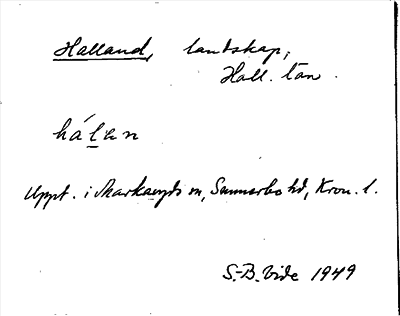 Halland, landskap,
Hall. län.
hálan
Uppt. i Markaryds sn, Sunnerbo hd, Kron. l.
S.-B. Vide 1949